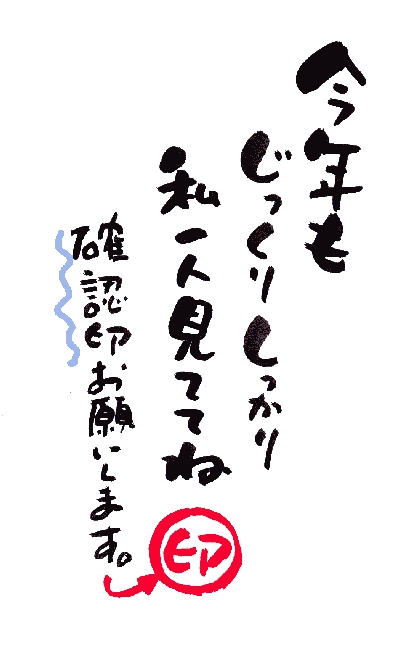 今年も
じっくりしっかり
私一人見ててね
確認印お願いします。
印